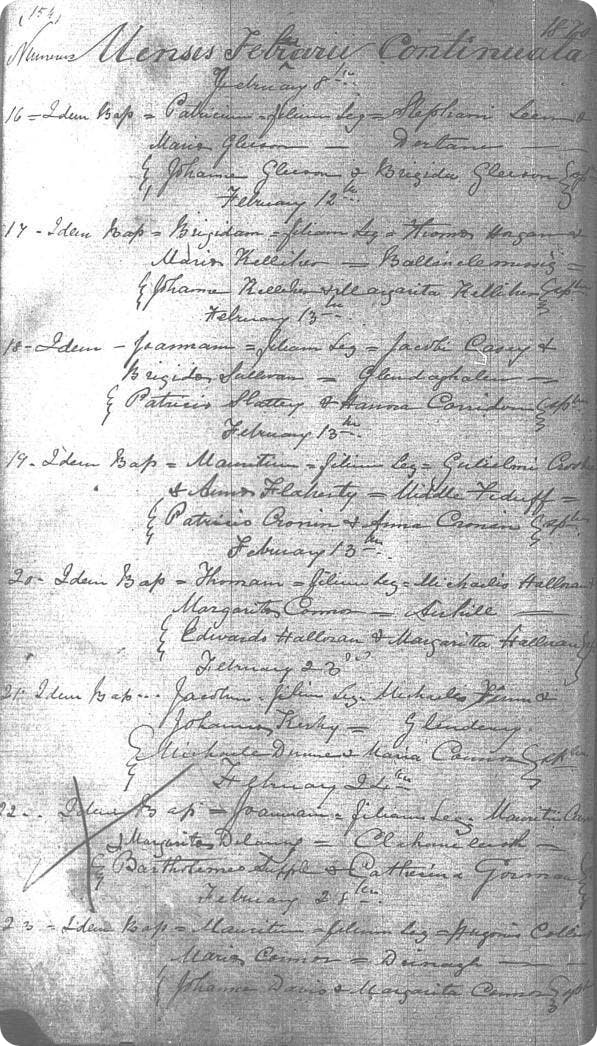 (154)
1870
Numerus Mensis Februarii Continuata
February 8th
16 = Idem Bap = Patricium = filium Leg = Stephani &
Maria Gleeson —
{ Johanne Gleeson & Brigida Gleeson } Spts
February 12th
17 - Idem Bap = Brigidam = filiam Leg = Thomas Hogan &
Maria Kelliher —
{ Johanne Kelliher & Margarita Kelliher } Spts
February 13th
18 - Idem - Joannam = filiam Leg = Jacobi Casey &
Brigida Sullivan =
{ Patricio Slattery & Hanora } Spts
February 13th
19 - Idem Bap = Mauritium = filium Leg = Gulielmi
& Anna Flaherty = Middle =
{ Patricio Cronin & Anna Cronin } Spts
February 13th
20 - Idem Bap = Thomam = filium Leg = Michaelis Halloran
Margarita Connor —
{ Edwardo Halloran & Margaritta Halloran
February 23rd
21 Idem Bap - Jacobum - filium Leg - Michaelis &
Johanna =
{ Michaele & Maria Connor } Spts
February 24th
22 - Idem Bap = Joannam = filiam Leg = Mauritii
& Margarita =
{ Bartholomeo Supple & Catherina Gorman
February 28th
23 = Idem Bap = Mauritium = filium Leg = Collins
Maria Connor = —
{ Johanne Davis & Margarita Connor } Spts